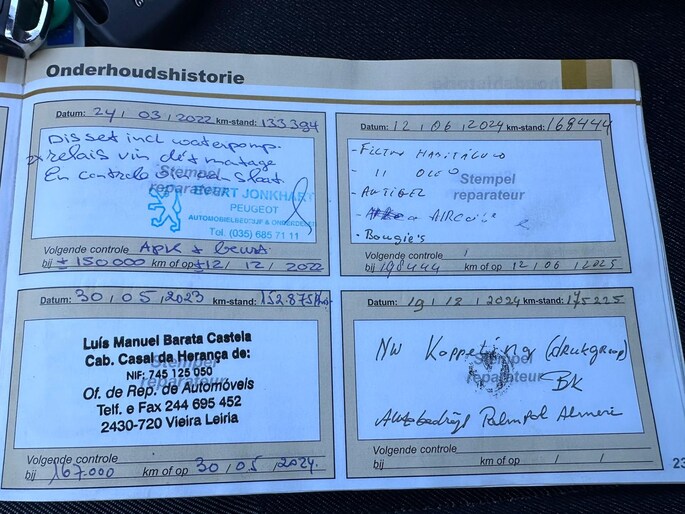 Onderhoudshistorie
Datum: 24 / 03 / 2022 km-stand: 133394
Disset incl waterpomp.
relais vin
En controle
Stempel
reparateur
EVERT JONKHART
PEUGEOT
AUTOMOBIELBEDRIJF &
Tel. (035) 685 71 11
Volgende controle APK + beurt
bij ± 150.000 km of op ± 12 / 12 / 2022
Datum: 30 / 05 / 2023 km-stand: 152.875
Luís Manuel Barata Castela
Cab. Casal da Herança de:
NIF: 745 125 050
Stempel
reparateur
Of. de Rep. de Automóveis
Telf. e Fax 244 695 452
2430-720 Vieira Leiria
Volgende controle
bij 167.000 km of op 30 / 05 / 2024.
Datum: 12 / 06 / 2024 km-stand: 168444
- FILTRO HABITÁCULO
- 11 OLEO
- ANTIGEL
- AIRCO
- Bougie's
Stempel
reparateur
Volgende controle /
bij 198444 km of op 12 / 06 / 2025
Datum: 19 / 12 / 2024 km-stand: 175225
NW Koppeling (drukgroep)
BK
Stempel
reparateur
Autobedrijf Palmpol Almere
Volgende controle
bij km of op / /
23